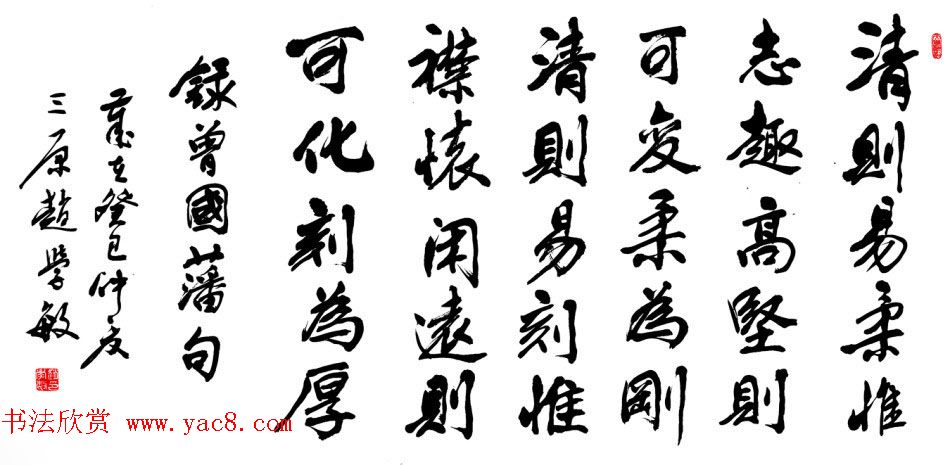 清則易柔惟
志趣高堅則
可变柔為剛
清則易刻惟
襟懷闲遠則
可化刻為厚
錄曾國藩句
歲在癸巳仲夏
三原趙學敏
书法欣赏 www.yac8.com